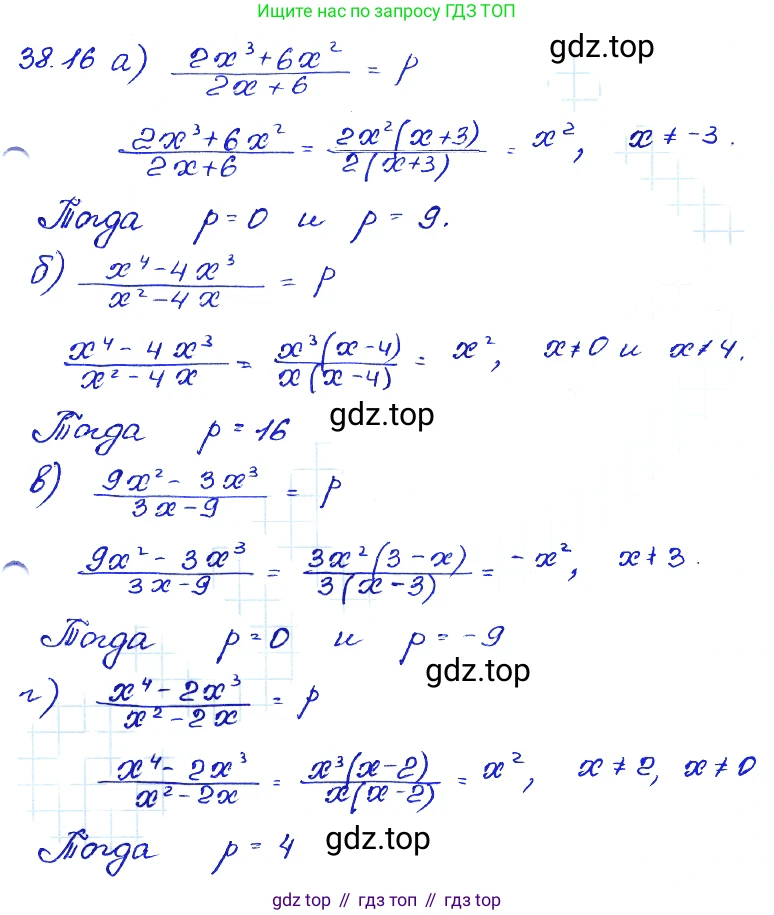 Ищите нас по запросу ГДЗ ТОП
38.16 а) (2x³+6x²)/(2x+6) = p
gdz.top
(2x³+6x²)/(2x+6) = (2x²(x+3))/(2(x+3)) = x², x ≠ -3.
Тогда p=0 и p=9.
б) (x⁴-4x³)/(x²-4x) = p
(x⁴-4x³)/(x²-4x) = (x³(x-4))/(x(x-4)) = x², x≠0 и x≠4.
gdz.top
Тогда p=16
в) (9x²-3x³)/(3x-9) = p
(9x²-3x³)/(3x-9) = (3x²(3-x))/(3(x-3)) = -x², x≠3.
Тогда p=0 и p=-9
gdz.top
г) (x⁴-2x³)/(x²-2x) = p
(x⁴-2x³)/(x²-2x) = (x³(x-2))/(x(x-2)) = x², x≠2, x≠0
Тогда p=4
gdz.top
gdz top // гдз топ // gdz top